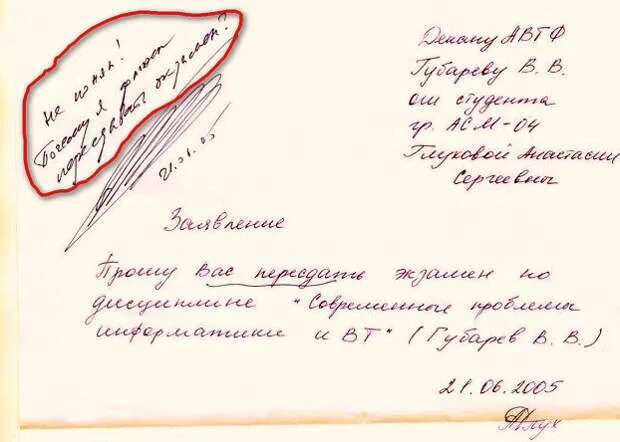 Не понял!
Почему я должен
пересдавать экзамен?
21.06.05
Декану АВТФ
Губареву В. В.
от студента
гр. АСМ-04
Глуховой Анастасии
Сергеевны
Заявление
Прошу Вас пересдать экзамен по
дисциплине "Современные проблемы
информатики и ВТ" (Губарев В. В.)
21.06.2005